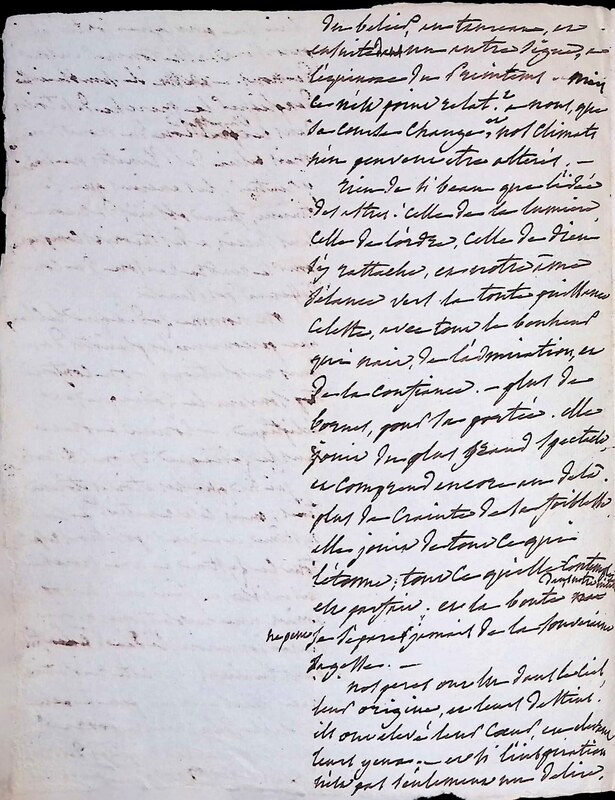 du belier, en taureau, et
ensuite dans un autre signe, a
l'équinoxe du Printems - mais
ce n'est point relat.t a nous, que
sa course change, et nos climats
n'en peuvent etre alterés. -
rien de si beau que l'idée
des astres. celle de la lumiere
celle de l'ordre, celle de dieu
s'y rattache, et notre ame
s'élance vers la toute puissance
celeste, avec tout le bonheur
qui nait, de l'admiration, et
de la confiance. - plus de
bornes, pour sa portée. elle
jouit du plus grand spectacle,
et comprend encore au dela.
plus de crainte de sa foiblesse
elle jouit de tout ce qui
l'étonne; tout ce qu'elle contemple
est parfait. et la bonté
ne peut se separer jamais de la souveraine
sagesse. -
nos peres ont lu dans le ciel
leur origine, et leurs destins.
ils ont elevé leur coeur, en elevant
leurs yeux. - et si l'inspiration
n'est pas seulement un delire,